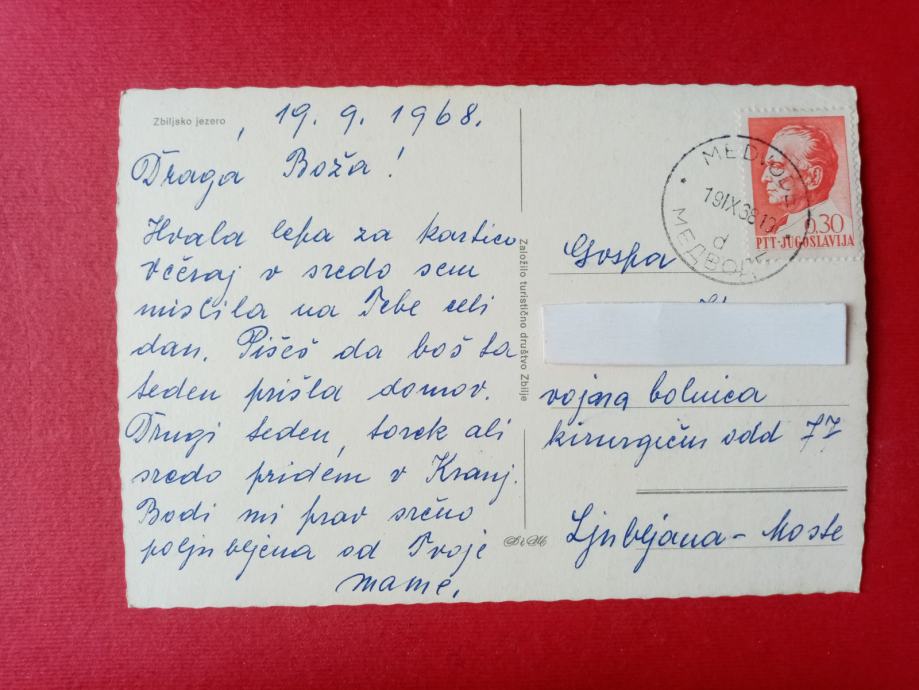 Zbiljsko jezero
, 19. 9. 1968.
Draga Boža!
Hvala lepa za kartico
Včeraj v sredo sem
mislila na Tebe celi
dan. Pišeš da boš ta
teden prišla domov.
Drugi teden, torek ali
sredo pridem v Kranj.
Bodi mi prav srčno
poljubljena od Tvoje
mame.
Založilo turistično društvo Zbilje
MEDVODE
19 IX 68
d
МЕДВОДЕ
0.30
PTT-JUGOSLAVIJA
Gospa
vojna bolnica
kirurgični odd
Ljubljana - Moste